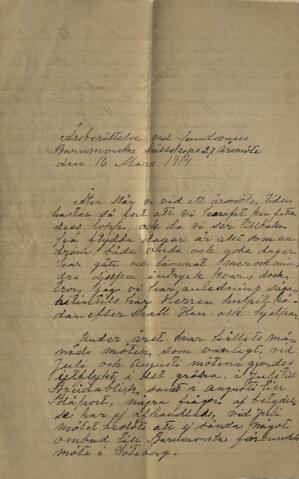 Årsberättelse vid Sundsvags
Barnmorske Sällskaps 27 årsmöte
den 16 Mars 1914
Åter står vi vid ett årsmöte, tiden
hastar så fort att vi knapt kan fatta
dess lopp, och då vi ser tillbaka
på flydda dagar är allt som en
dröm, både onda och goda dagar
har gått och lämnat i hvarandra
djupa intryck kvar, dock
tror jag vi har anledning säga
hitintills har Herren hulpit hä-
danefter skall Han ock hjelpa
Under året har hållits må-
nads möten, som vanligt, vid
Juli och Augusti mötena gjordes
utflykt i det gröna, i Juli till
Breidablick, samt i augusti till
några frågor af betydel-
se har ej afhandlats, vid Juli
mötet beslöts att ej sända något
ombud till Barnmorske förbundets
möte i Göteborg.